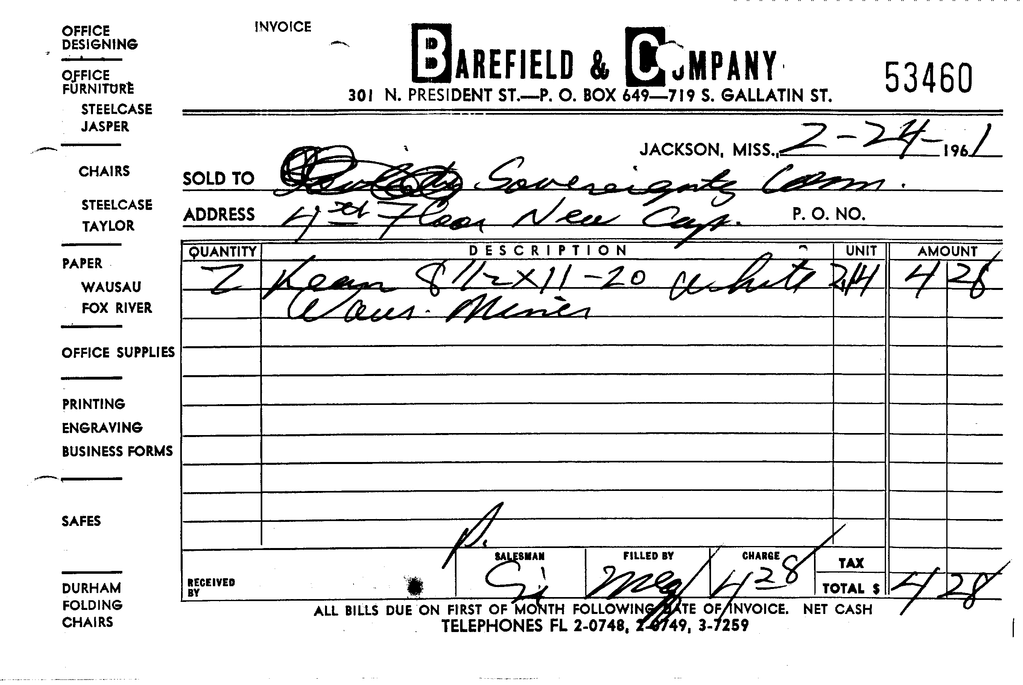 INVOICE
BAREFIELD & COMPANY
53460
301 N. PRESIDENT ST.—P. O. BOX 649—719 S. GALLATIN ST.
JACKSON, MISS., 2-24-1961
SOLD TO Sovereignty Comm.
ADDRESS 4th Floor New Cap. P. O. NO.
QUANTITY DESCRIPTION UNIT AMOUNT
2 8 1/2 x 11-20 White 214 4 28
Waus.
SALESMAN FILLED BY CHARGE TAX
RECEIVED BY
4 28 TOTAL $ 4 28
ALL BILLS DUE ON FIRST OF MONTH FOLLOWING DATE OF INVOICE. NET CASH
TELEPHONES FL 2-0748, 2-0749, 3-7259
OFFICE
DESIGNING
OFFICE
FURNITURE
STEELCASE
JASPER
CHAIRS
STEELCASE
TAYLOR
PAPER
WAUSAU
FOX RIVER
OFFICE SUPPLIES
PRINTING
ENGRAVING
BUSINESS FORMS
SAFES
DURHAM
FOLDING
CHAIRS